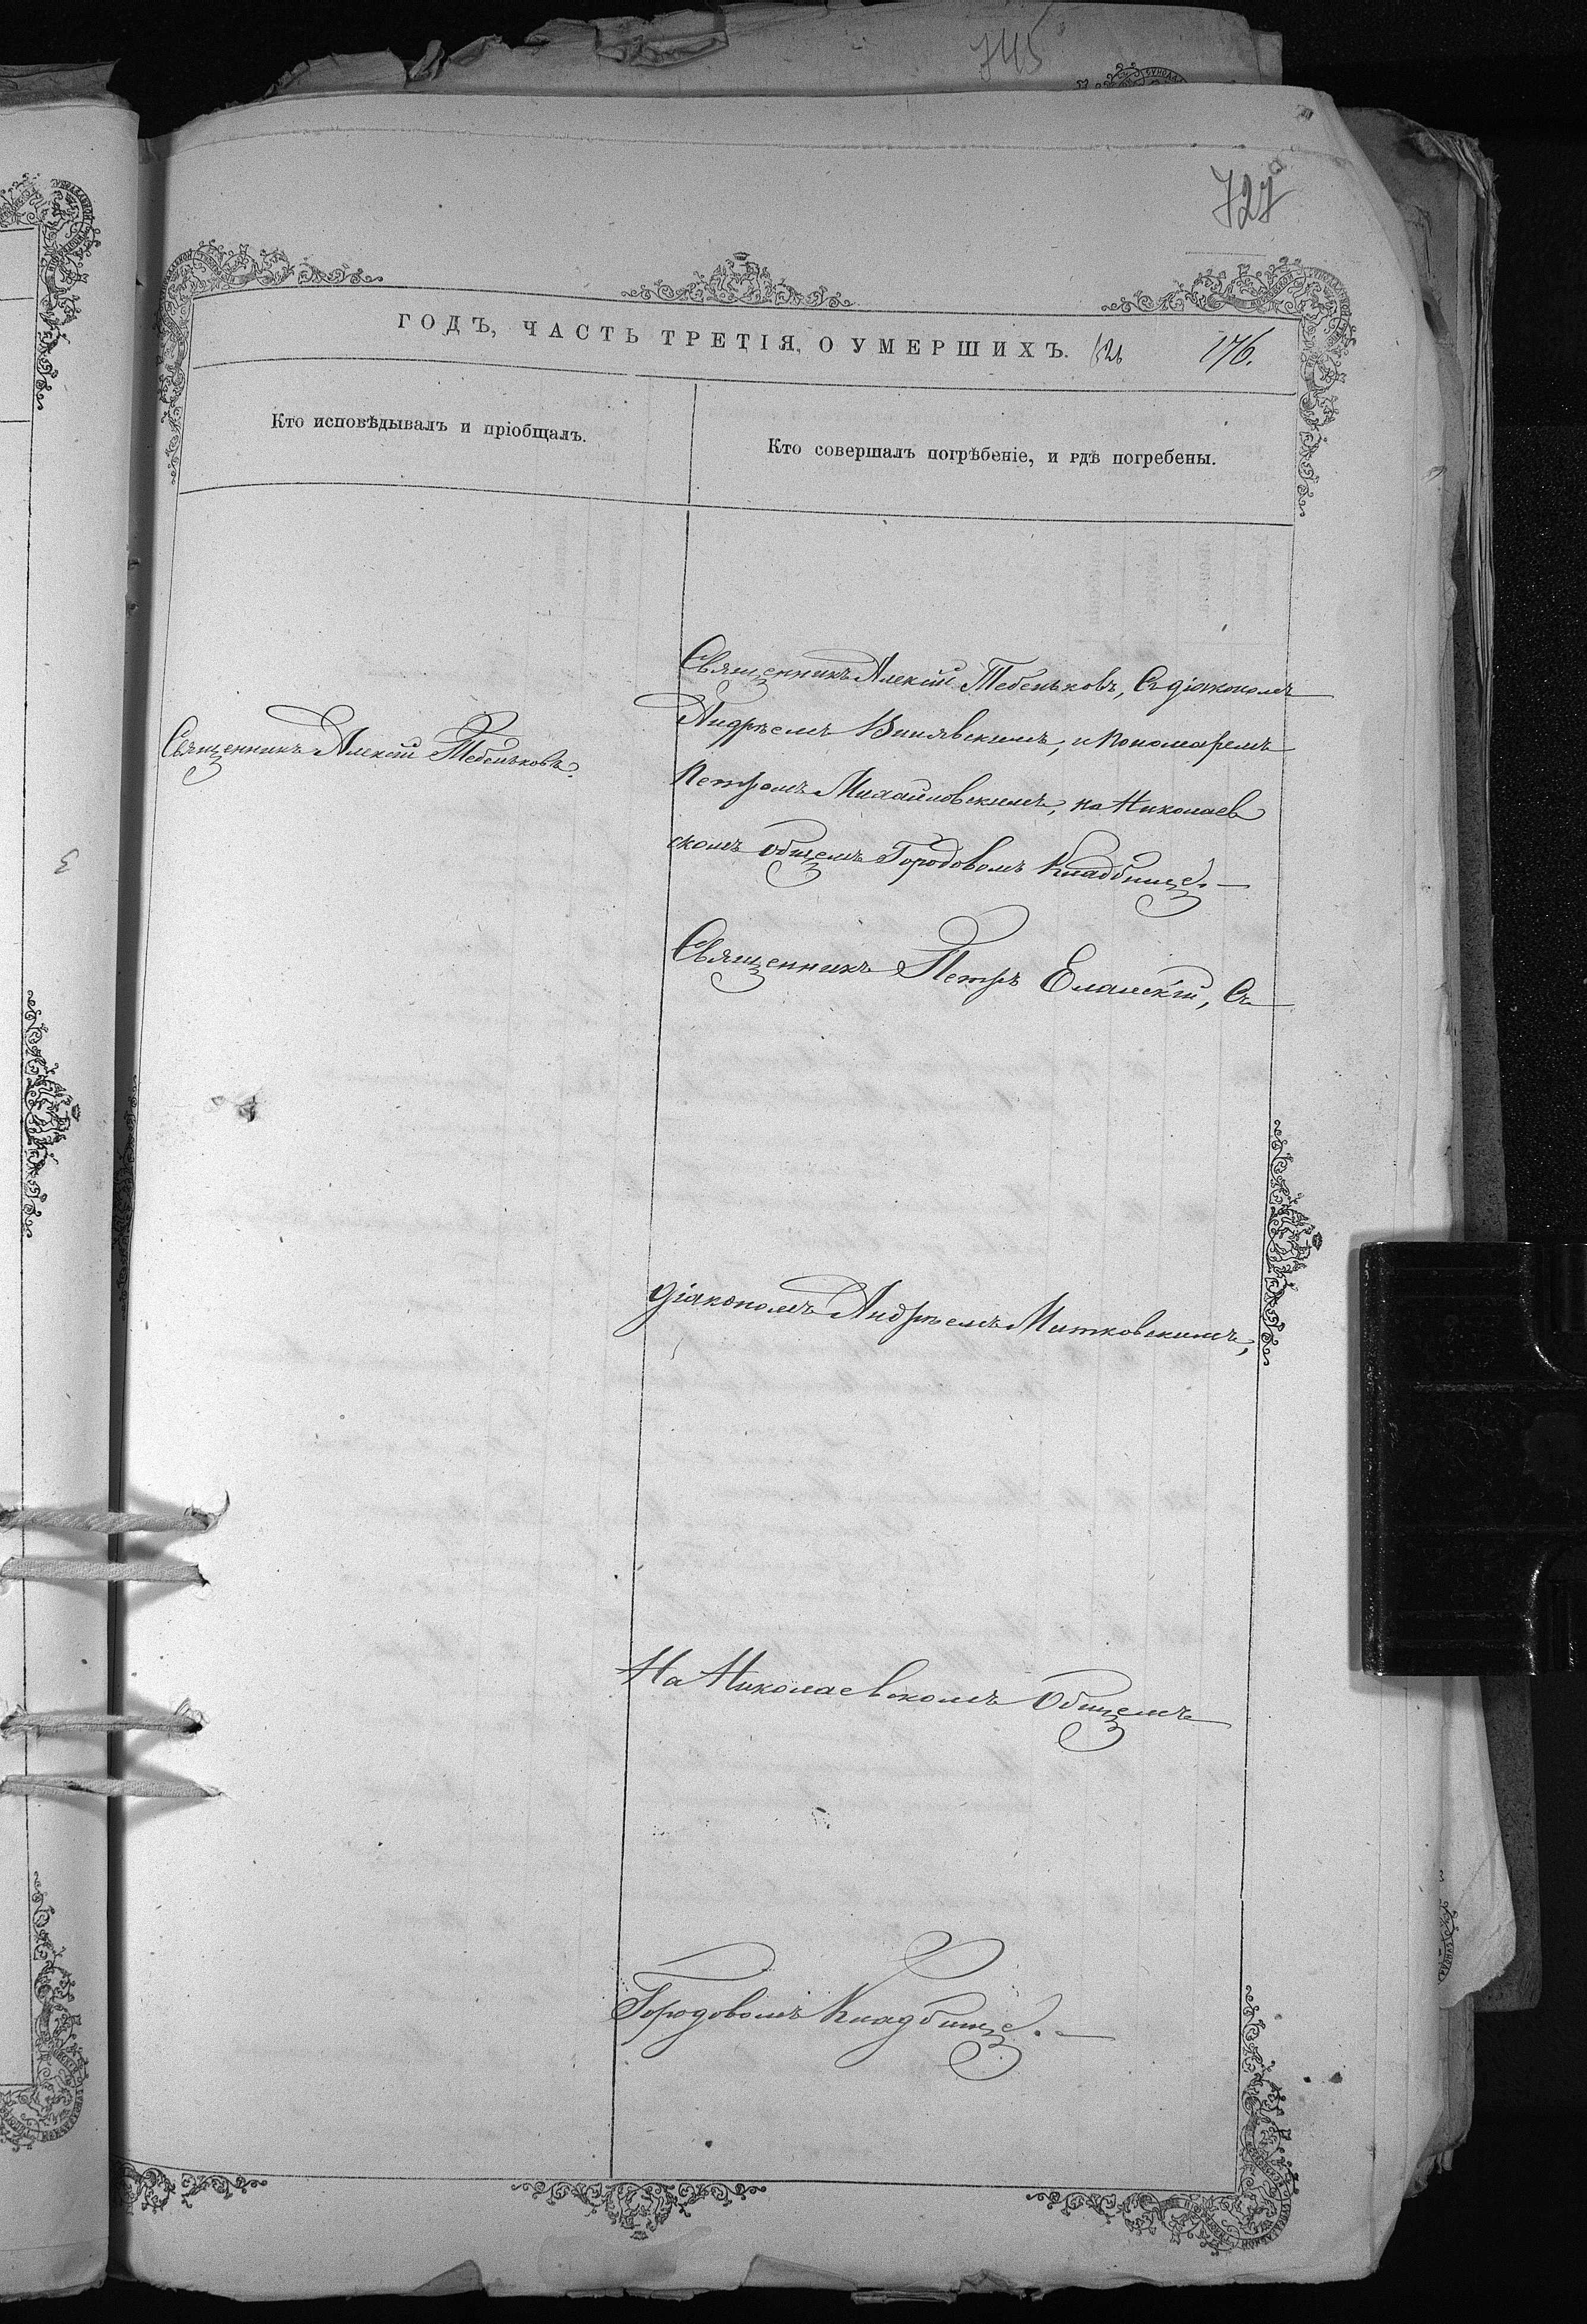 745
727
ГОДЪ, ЧАСТЬ ТРЕТІЯ, О УМЕРШИХЪ. 176.
Кто исповѣдывалъ и пріобщалъ.
Кто совершалъ погрѣбеніе, и гдѣ погребены.
Священникъ Алексій Тебеньковъ.
Священникъ Алексій Тебеньковъ, Съ діакономъ
Андреемъ Винявскимъ, и Пономаремъ
Петромъ Михайловскимъ, на Николаев
скомъ общемъ Городовомъ Кладбищѣ. —
Священникъ Петръ Еланскій, Съ
діакономъ Андреемъ Митковскимъ,
На Николаевскомъ Общемъ
Городовомъ Кладбищѣ. —